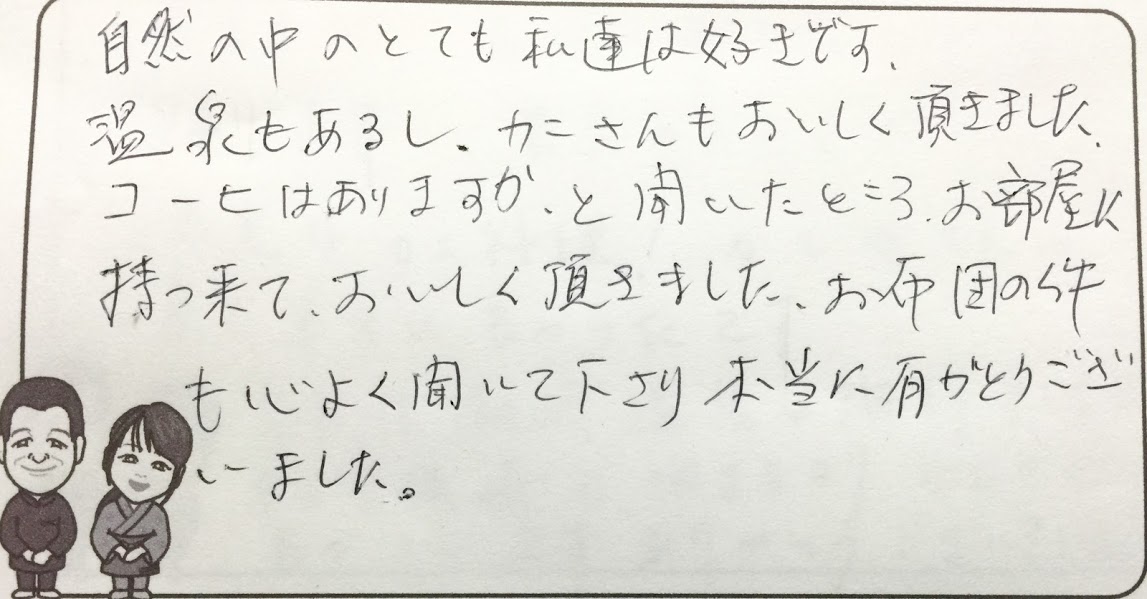 自然の中のとても私達は好きです、
温泉もあるし、カニさんもおいしく頂きました、
コーヒはありますか、と聞いたところ、お部屋に
持っ来て、おいしく頂きました、お布団の件
も心よく聞いて下さり本当に有がとうござ
いました。